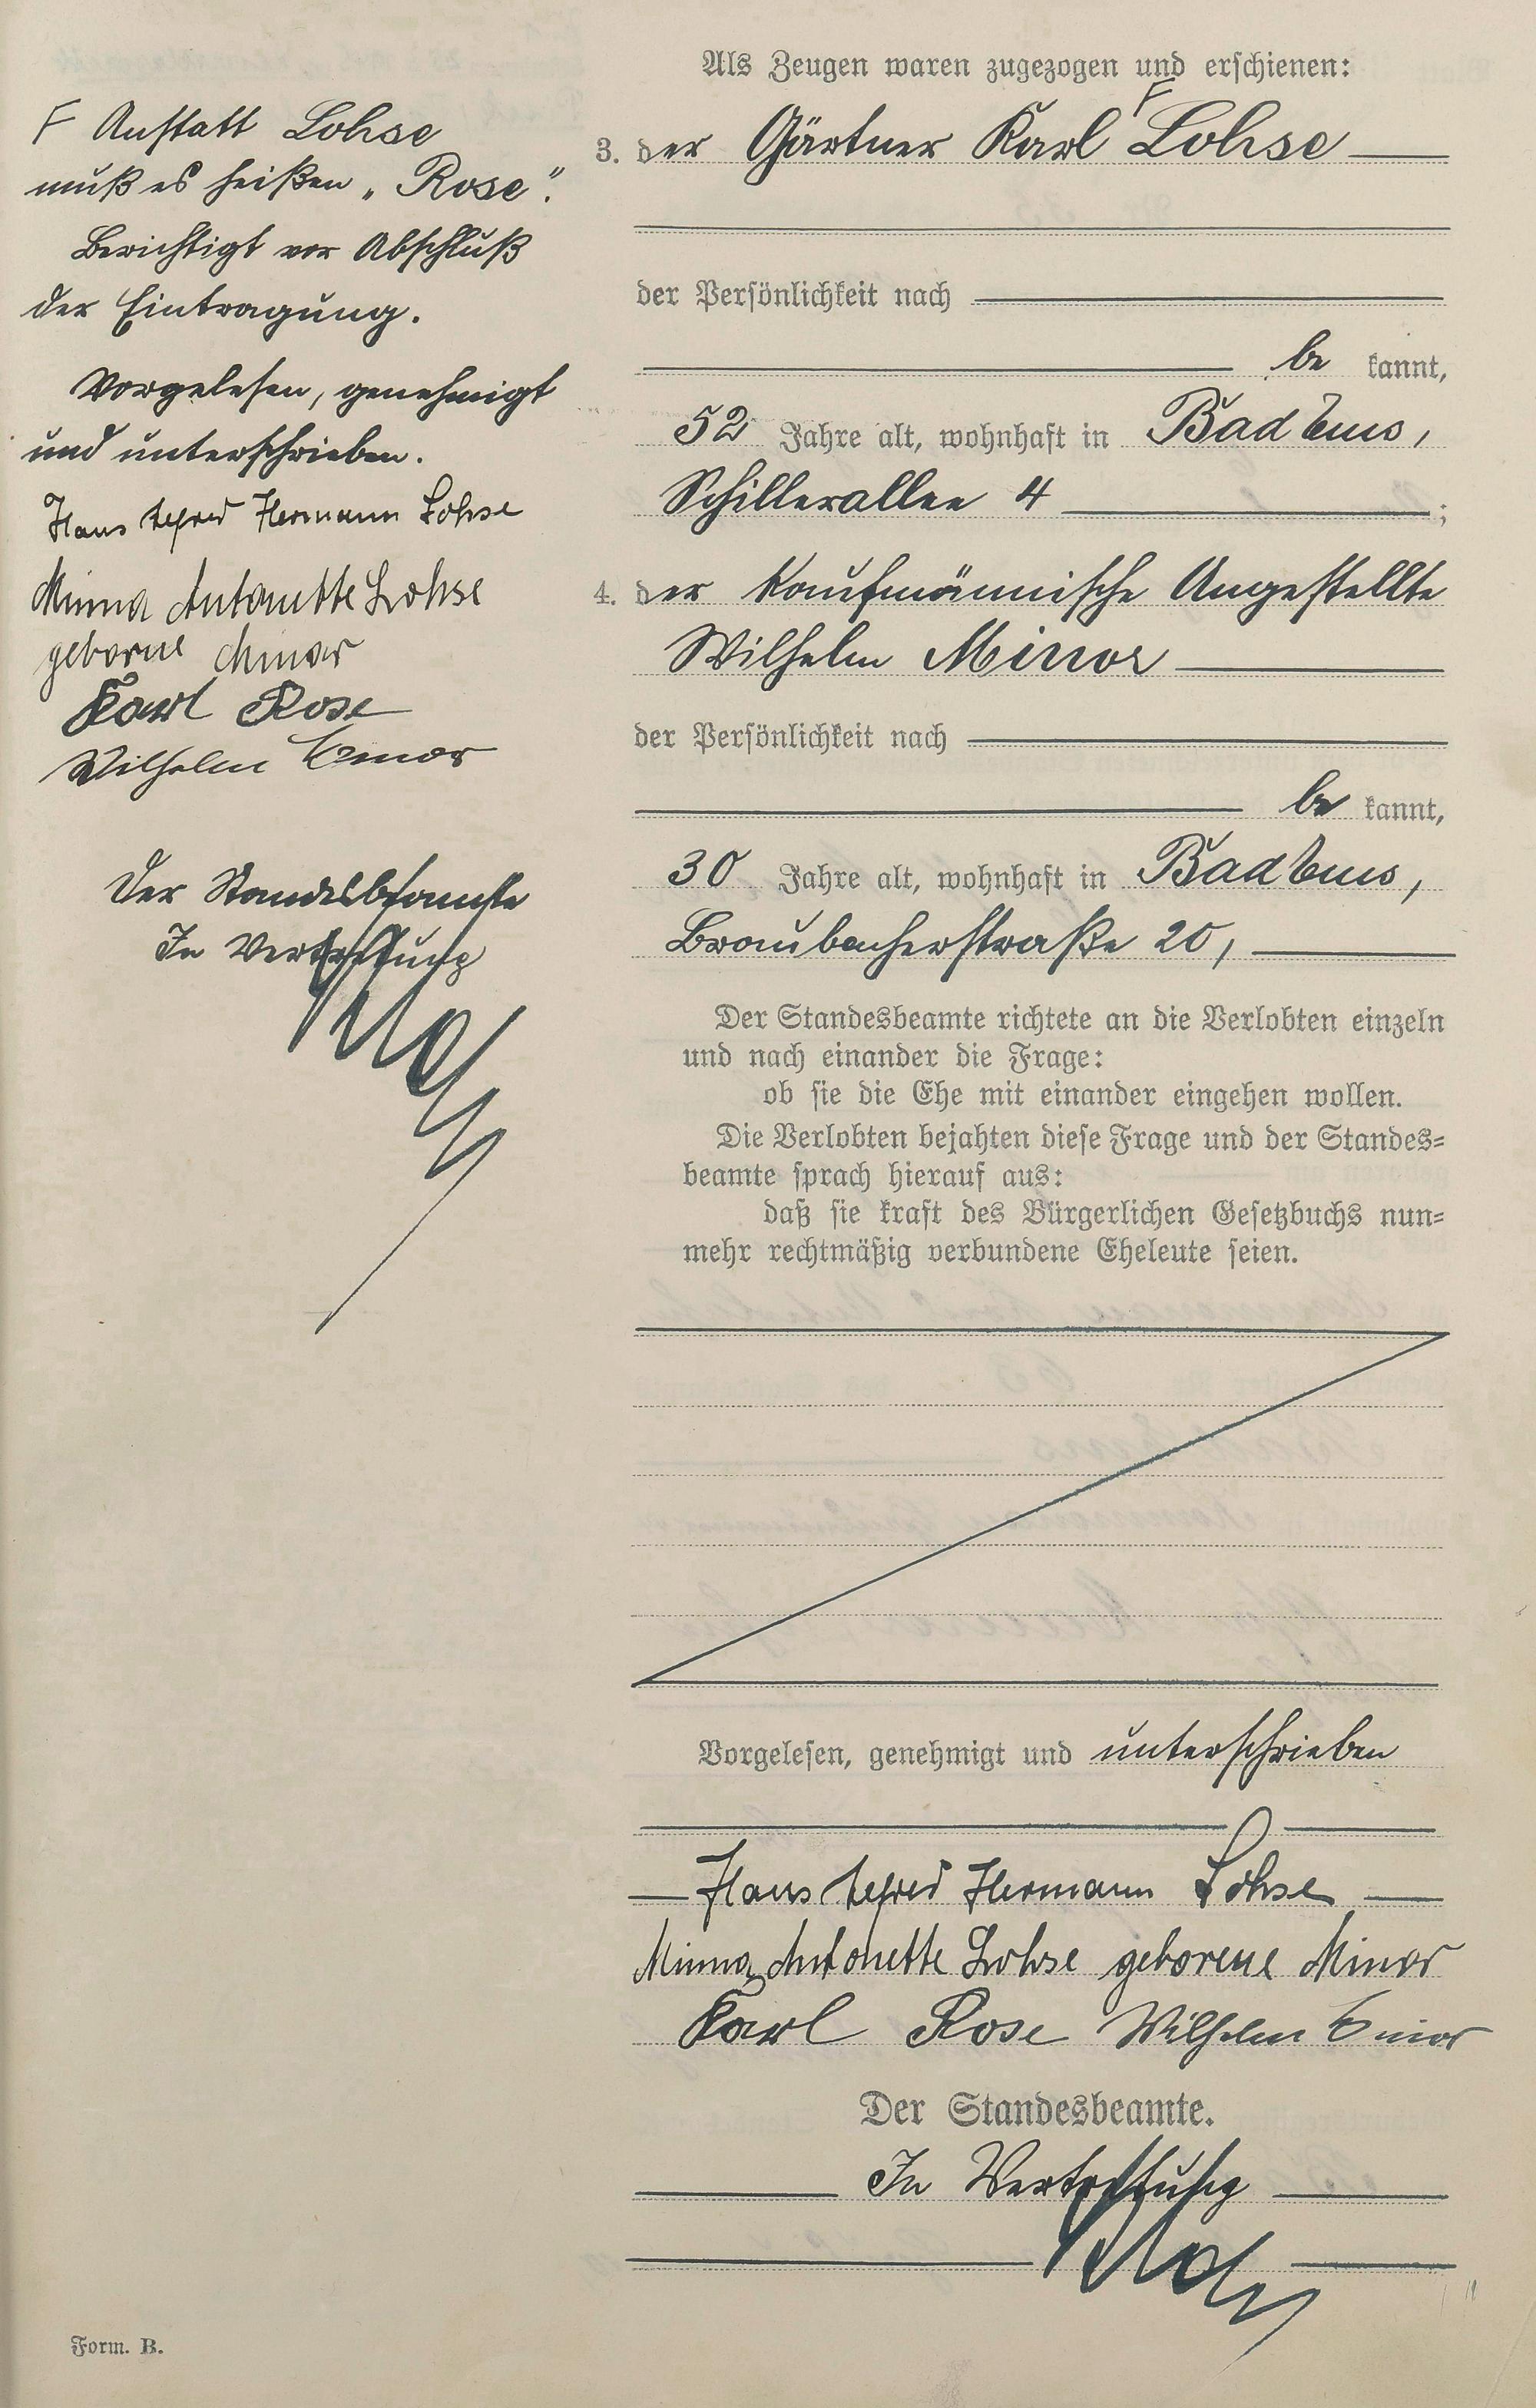 Als Zeugen waren zugezogen und erschienen:
3. der Gärtner Karl ⊢ Lohse
der Persönlichkeit nach
be kannt,
52 Jahre alt, wohnhaft in Bad Ems,
Schillerallee 4 ;
4. der kaufmännische Angestellte
Wilhelm Minor
der Persönlichkeit nach
be kannt,
30 Jahre alt, wohnhaft in Bad Ems,
Braubacherstraße 20,
Der Standesbeamte richtete an die Verlobten einzeln
und nach einander die Frage:
ob sie die Ehe mit einander eingehen wollen.
Die Verlobten bejahten diese Frage und der Standes=
beamte sprach hierauf aus:
daß sie kraft des Bürgerlichen Gesetzbuchs nun=
mehr rechtmäßig verbundene Eheleute seien.
Vorgelesen, genehmigt und unterschrieben
Hans Alfred Hermann Lohse
Minna Antonette Lohse geborene Minor
Karl Rose Wilhelm Minor
Der Standesbeamte.
In Vertretung
⊢ Anstatt Lohse
muß es heißen „Rose".
Berichtigt vor Abschluß
der Eintragung.
Vorgelesen, genehmigt
und unterschrieben.
Hans Alfred Hermann Lohse
Minna Antonette Lohse
geborne Minor
Karl Rose
Wilhelm Minor
Der Standesbeamte
In Vertretung
Form. B.